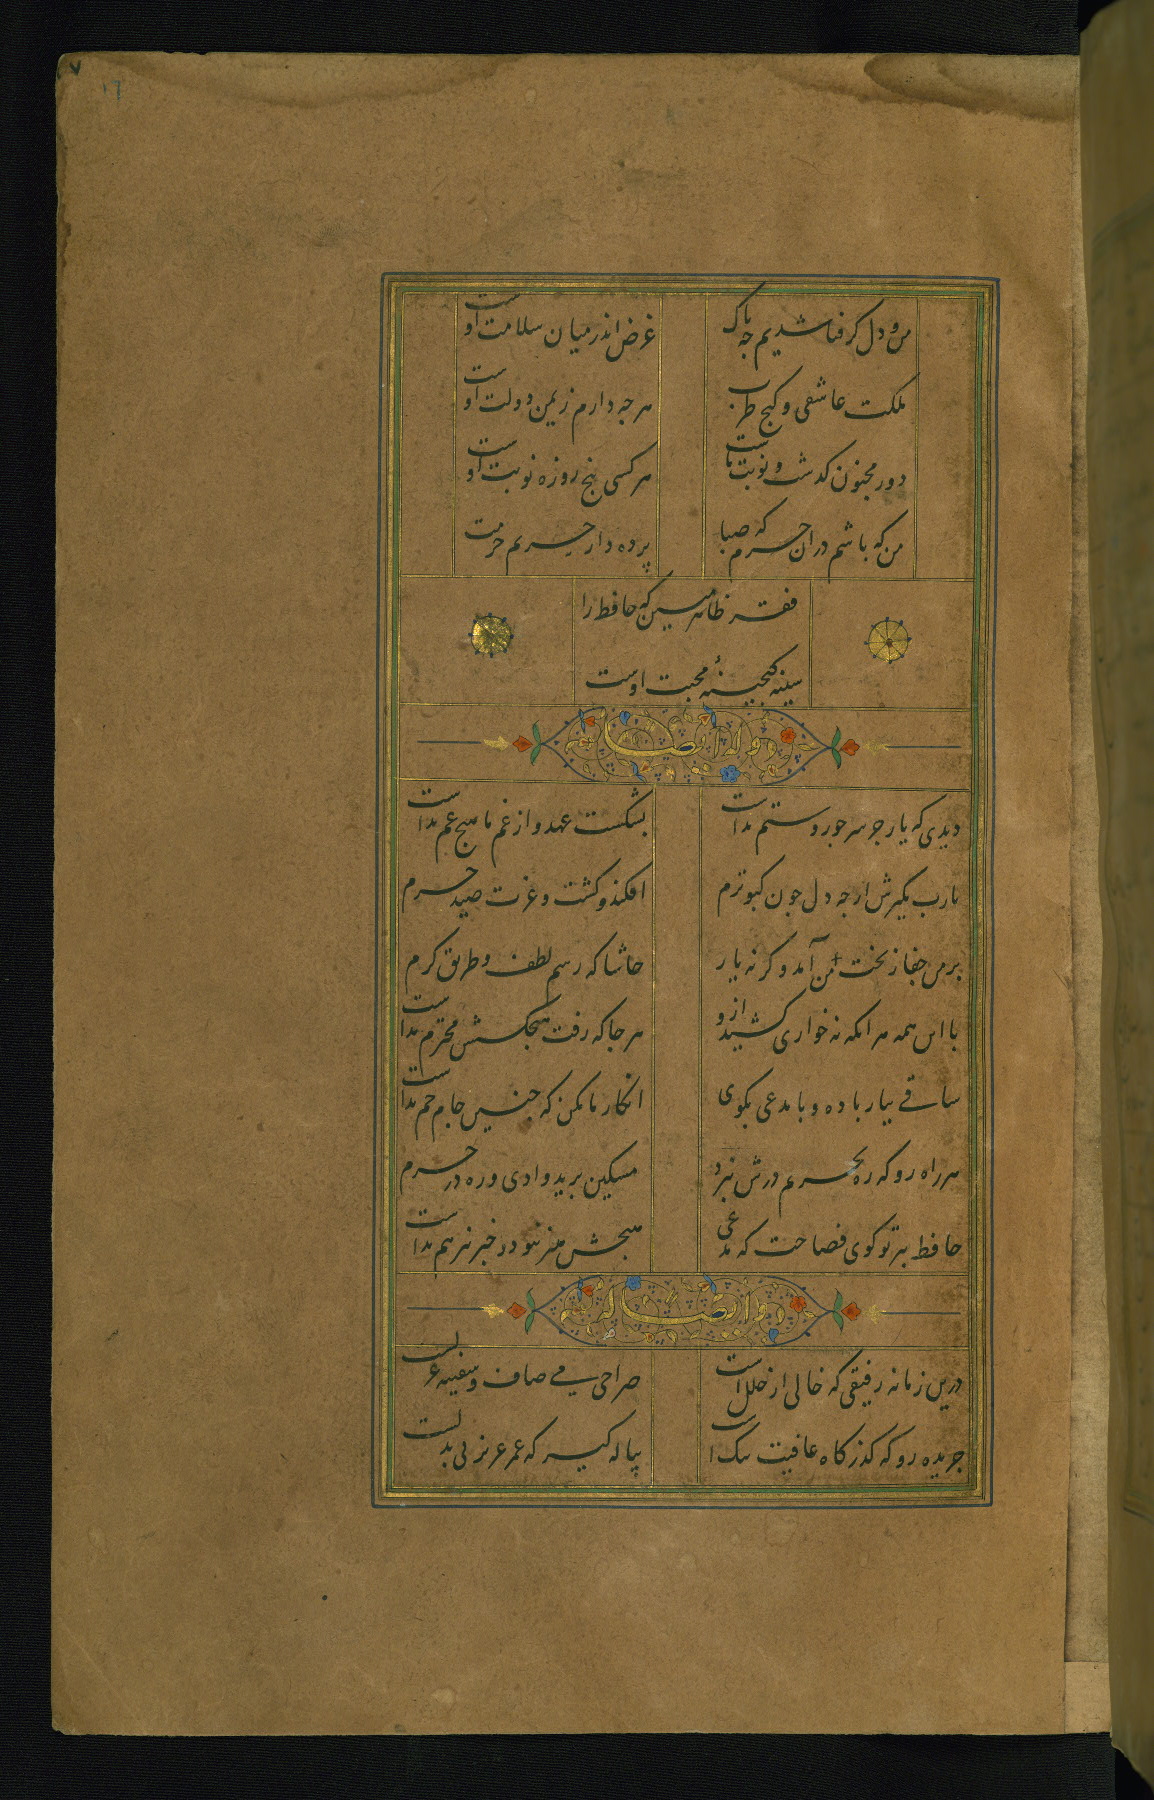 ۱٦
من و دل کر فنا شدیم چه باک
غرض اندر میان سلامت اوست
ملکت عاشقی و کنج طرب
هر چه دارم ز یمن دولت اوست
دور مجنون کدشت و نوبت ماست
هر کسی پنج روزه نوبت اوست
من که باشم دران حرم که صبا
پرده دار حریم حرمت
فقر ظاهر مبین که حافظ را
سینه کنجینۀ محبت اوست
و له ایضا
دیدی که یار جز سر جور و ستم نداشت
بشکست عهد و از غم ما هیچ غم نداشت
یارب مکیرش ار چه دل چون کبوترم
افکند و کشت و عزت صید حرم
بر من جفا ز بخت من آمد و کرنه یار
حاشا که رسم لطف و طریق کرم
با این همه هر انکه نه خواری کشید ازو
هر جا که رفت هیچکسش محترم نداشت
ساقی بیار باده و با مدعی بکوی
انکار ما مکن که چنین جام جم نداشت
هر راه رو که ره بحریم درش نبرد
مسکین برید وادی و ره در حرم
حافظ ببر تو کوی فصاحت که مدعی
هیچش هنر نبود و خبر نیز هم نداشت
و ایضا له
درین زمانه رفیقی که خالی از خلل است
صراحی می صاف و سفینه غزلست
جریده رو که کذرکاه عافیت تنک است
پیاله کیر که عمر عزیز بی بدلست